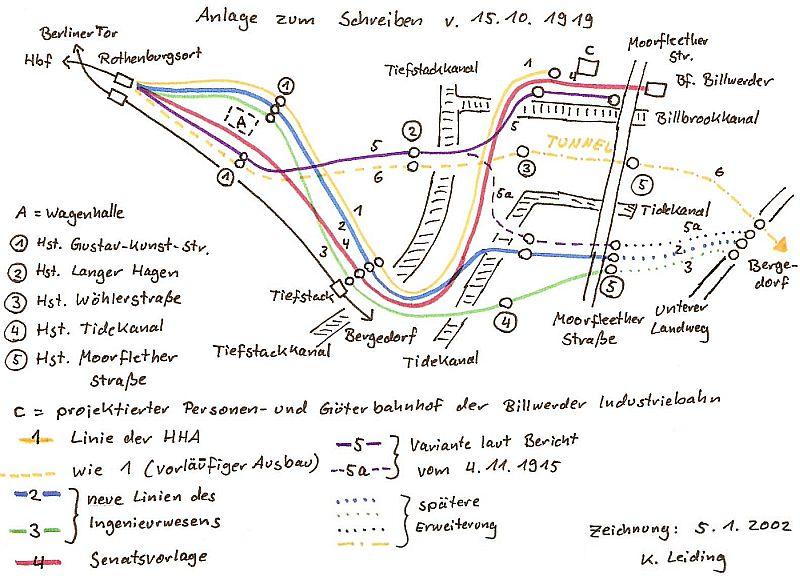 Anlage zum Schreiben v. 15.10.1919
Berliner Tor
Hbf
Rothenburgsort
Tiefstackkanal
1
C
4
Moorfleether
Str.
Bf. Billwerder
Billbrookkanal
1
A
5
2
6
5
TUNNEL
3
5
6
1
5a
Tidekanal
A = Wagenhalle
1 Hst. Gustav-Kunst-Str.
2 Hst. Langer Hagen
3 Hst. Wöhlerstraße
4 Hst. Tidekanal
5 Hst. Moorflether
Straße
1
2
4
3
Tiefstack
Bergedorf
Tiefstackkanal
Tidekanal
4
5
Moorfleether
Straße
5a
2
3
Unterer
Landweg
Berge-
dorf
C = projektierter Personen- und Güterbahnhof der Billwerder Industriebahn
1 Linie der HHA
wie 1 (vorläufiger Ausbau)
2 neue Linien des
3 Ingenieurwesens
4 Senatsvorlage
5 Variante laut Bericht
5a vom 4.11.1915
spätere
Erweiterung
Zeichnung: 5.1.2002
K. Leiding